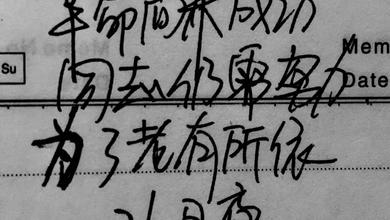 革命尚未成功
Mem
Su
同志仍需努力
Date
为了老有所依